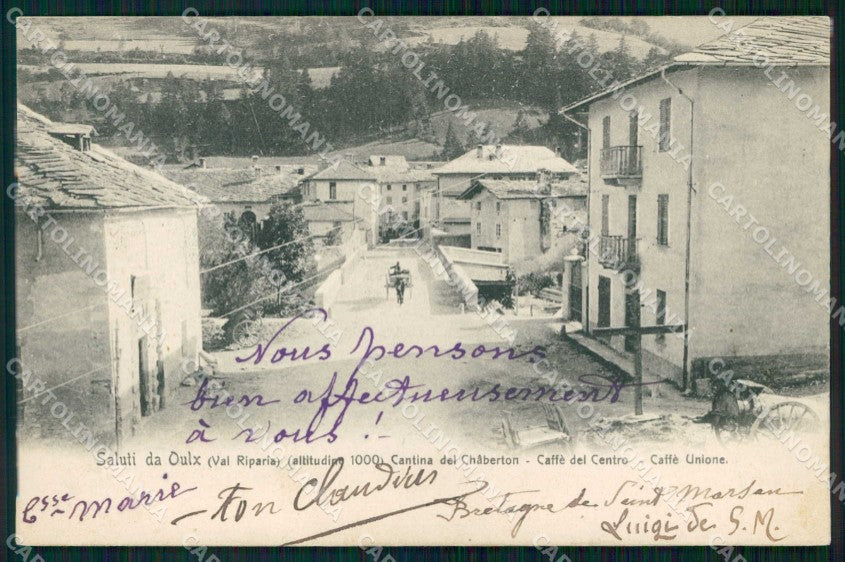 Nous pensons
bien affectueusement
à vous!
Saluti da Oulx (Val Riparia) (altitudine 1000) Cantina del Châberton - Caffè del Centro - Caffè Unione.
Csse Marie
Ton Claudius
Bretagne de Saint Marsan
Luigi de S. M.
CARTOLINOMANIA